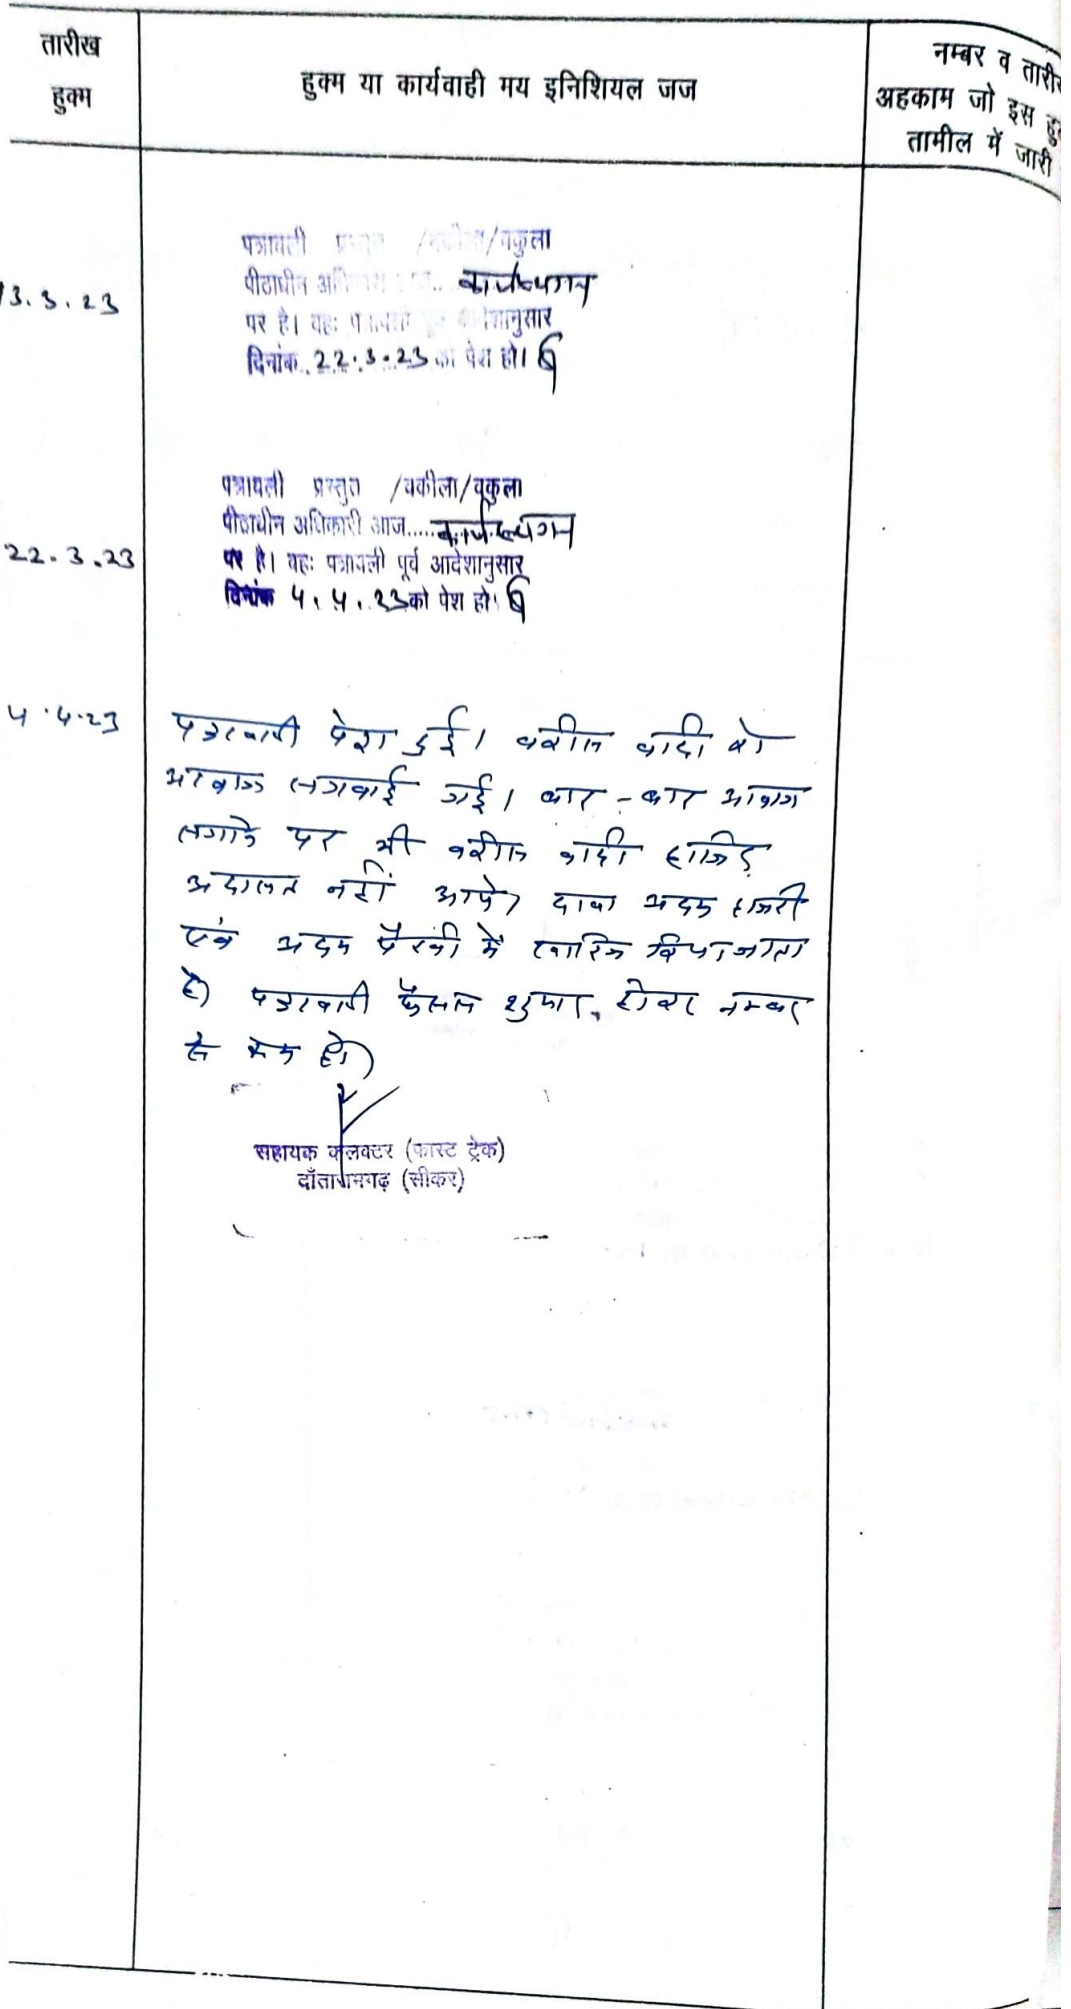 तारीख
हुक्म
हुक्म या कार्यवाही मय इनिशियल जज
नम्बर व तारीख
अहकाम जो इस
तामील में जारी
13.3.23
पत्रावली प्रस्तुत /वकीला/वकुला
पीठाधीन अधिकारी आज.. कार्यस्थगन
पर है। वहः पत्रावली पूर्व आदेशानुसार
दिनांक 22.3.23 को पेश हो।
22.3.23
पत्रावली प्रस्तुत /वकीला/वकुला
पीठाधीन अधिकारी आज..... कार्यस्थगन
पर है। वहः पत्रावली पूर्व आदेशानुसार
दिनांक 4.4.23 को पेश हो।
4.4.23
पत्रावली पेश हुई। वकील वादी को
आवाज लगवाई गई। बार-बार आवाज
लगाने पर भी वकील वादी हाजिर
अदालत नहीं आये। दावा अदम हाजरी
एवं अदम पैरवी में खारिज किया जाता
है। पत्रावली फैसल शुमार होकर नम्बर
से कम हो।
सहायक कलक्टर (फास्ट ट्रेक)
दाँतारामगढ़ (सीकर)